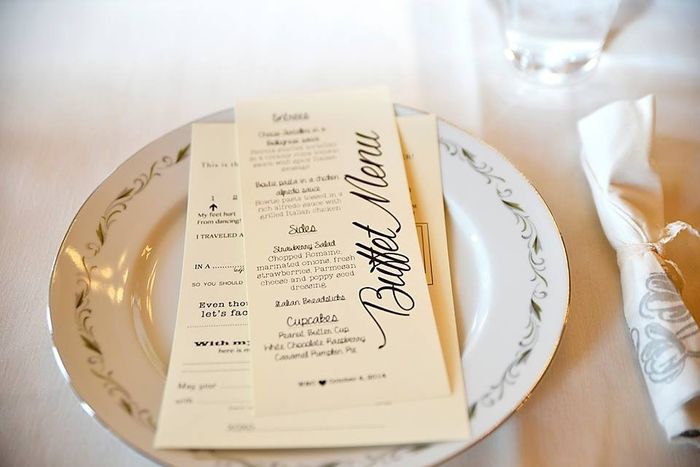 Entrees
Cheese tortellini in a
Bolognese sauce
in a creamy
sauce with spicy Italian
sausage
Bowtie pasta in a chicken
alfredo sauce
Bowtie pasta tossed in a
rich alfredo sauce with
grilled Italian chicken
Sides
Strawberry Salad
Chopped Romaine,
marinated onions, fresh
strawberries, Parmesan
cheese and poppy seed
dressing.
Italian Breadsticks
Cupcakes
Peanut Butter Cup
White Chocolate Raspberry
Caramel Pumpkin Pie
October 4, 2014
Buffet Menu
This is
1 2
My feet hurt
From dancing!
I TRAVELED A
IN A
SO YOU SHOULD
Even thou
let's fac
With my
here is m
May your
with